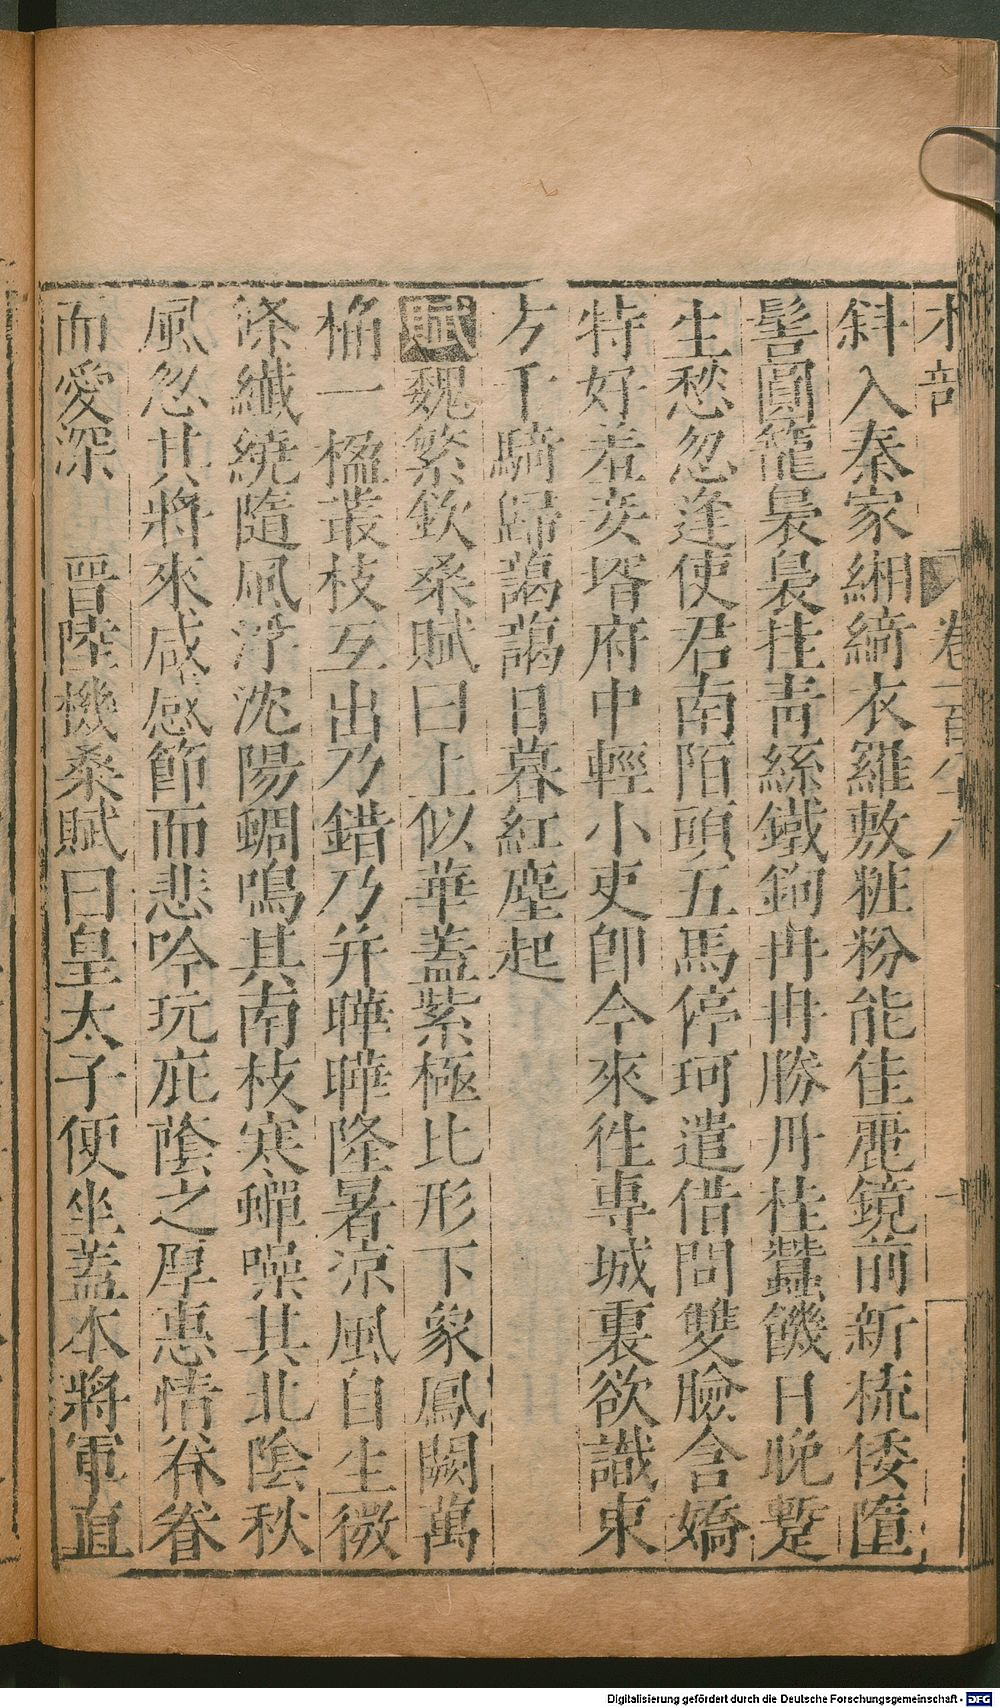 木部 卷一百八十八
斜入秦家緗綺衣羅敷粧粉能佳麗鏡前新梳倭墮
髻圓籠裊裊挂青絲鐵鉤冉冉勝丹桂蠶饑日晚蹔
生愁忽逢使君南陌頭五馬停珂遣借問雙臉含嬌
特好羞妾壻府中輕小吏卽今來徃專城裏欲識東
方千騎歸藹藹日暮紅塵起
賦魏繁欽桑賦曰上似華蓋紫極比形下象鳳闕萬
桷一楹叢枝互出乃錯乃并曄曄隆暑涼風自生微
條纖繞隨風浮沈陽蜩鳴其南枝寒蟬噪其北陰秋
風忽其將來咸感節而悲吟玩庇蔭之厚惠情眷眷
而愛深 晉陸機桑賦曰皇太子便坐蓋本將軍直
Digitalisierung gefördert durch die Deutsche Forschungsgemeinschaft - DFG